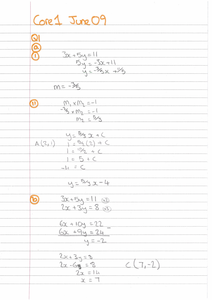 Core 1 June 09
Q1
a
i
3x + 5y = 11
5y = -3x + 11
y = -3/5 x + 11/5
m = -3/5
ii
m₁ × m₂ = -1
-3/5 × m₂ = -1
m₂ = 5/3
y = 5/3 x + c
1 = 5/3 ( ) + c
1 = 5 + c
-4 = c
y = 5/3 x - 4
b
3x + 5y = 11
2x + 3y = 8
6x + 10y = 22
6x + 9y = 24 -
y = -2
2x + 3y = 8
2x - 6 = 8
2x = 14
x = 7
C (7, -2)